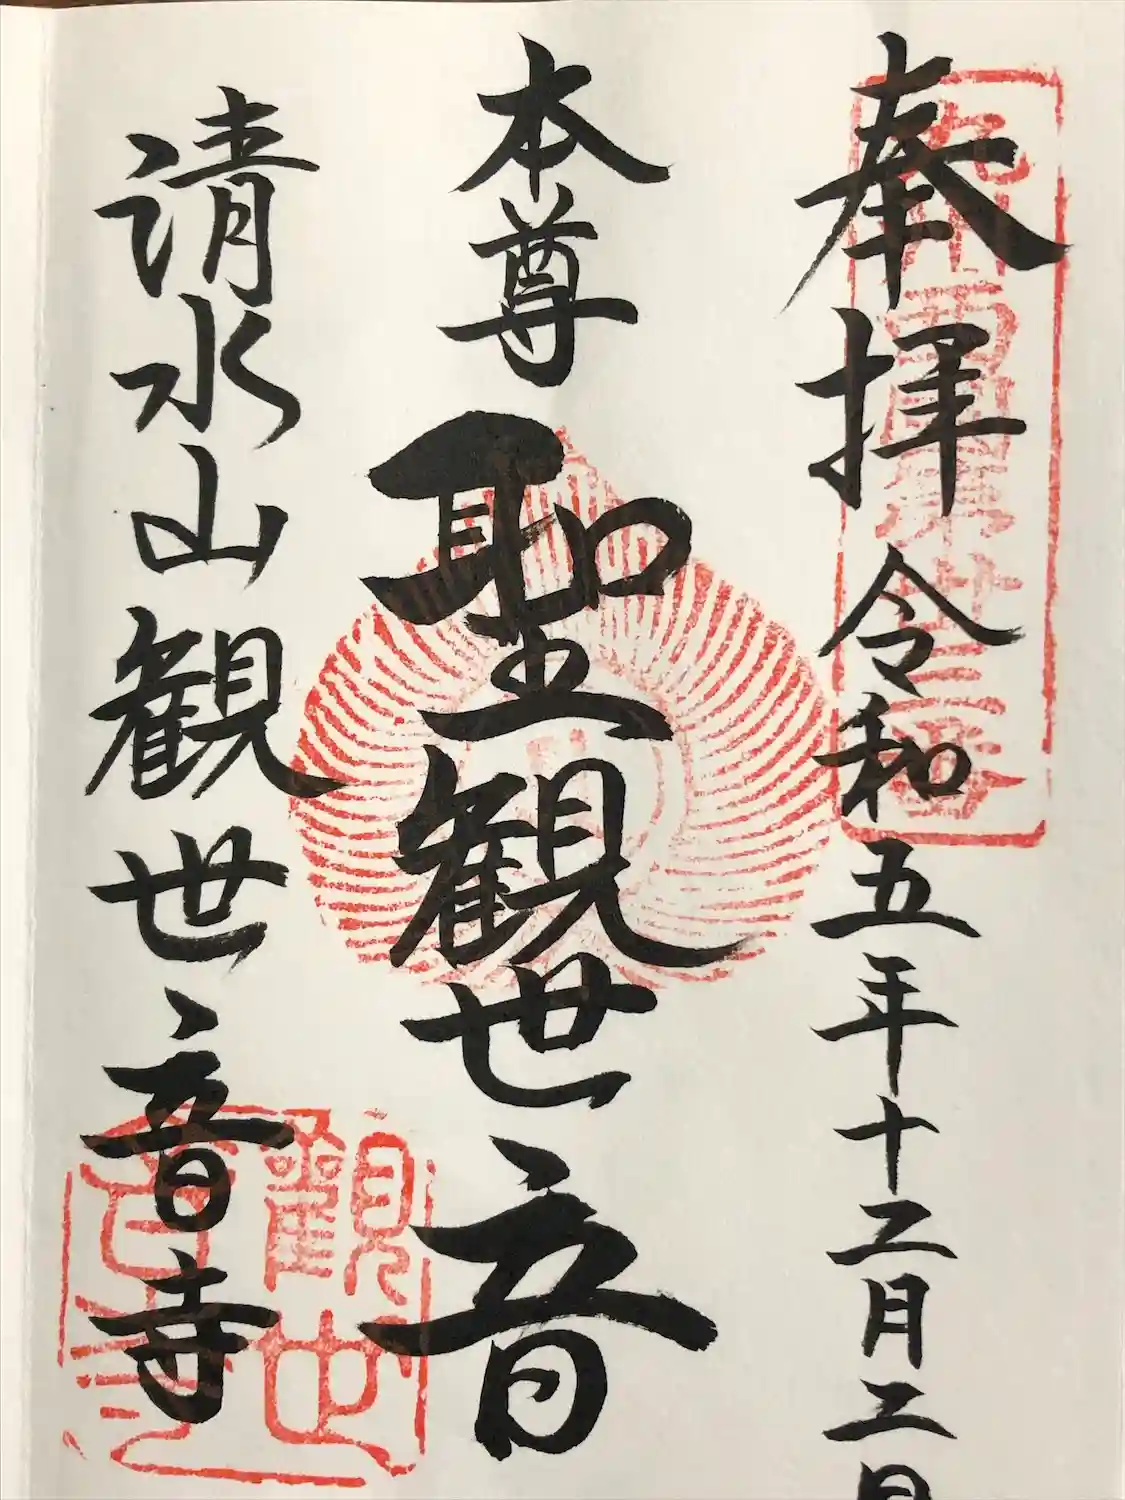 奉拝 令和五年十二月二日
本尊 聖観世音
請水山観世音寺
観世音寺